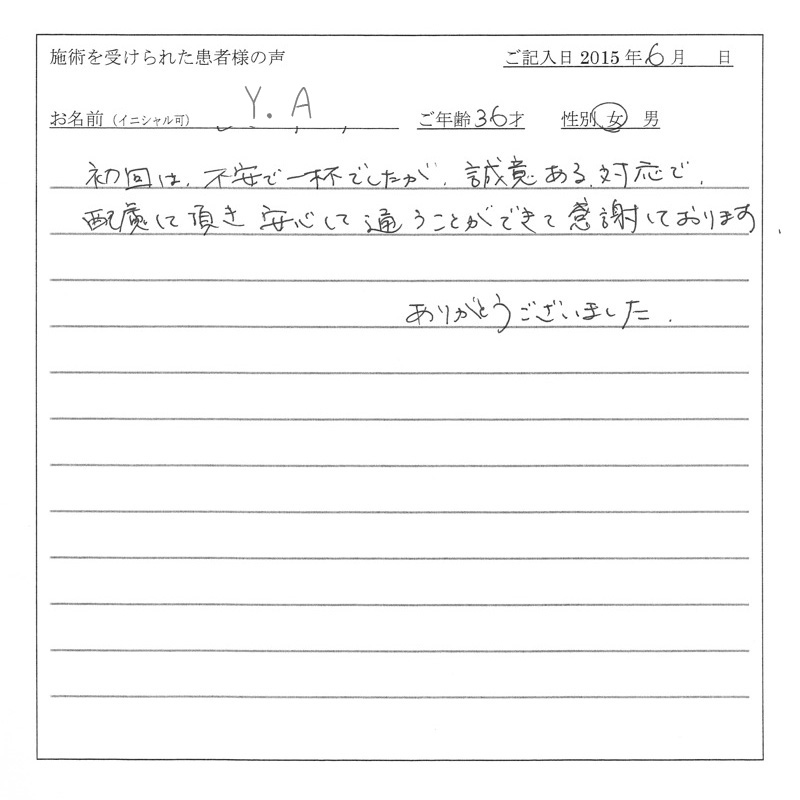 施術を受けられた患者様の声 ご記入日 2015 年 6 月 日
お名前（イニシャル可） Y.A ご年齢 36 才 性別 女 男
初回は、不安で一杯でしたが、誠意ある対応で、
配慮して頂き 安心して通うことができて感謝しております、
ありがとうございました.